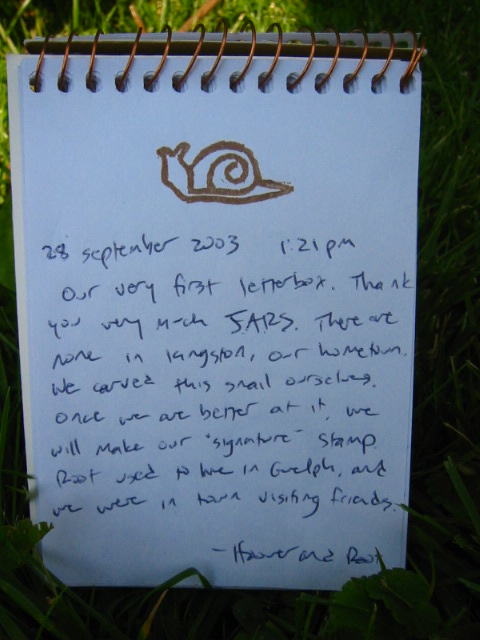 28 september 2003 1:21pm
Our very first letterbox. Thank
you very much SARS. There are
none in Kingston, our hometown.
We carved this snail ourselves.
Once we are better at it, we
will make our "signature" stamp.
Root used to live in Guelph, and
we were in town visiting friends.
- and Root